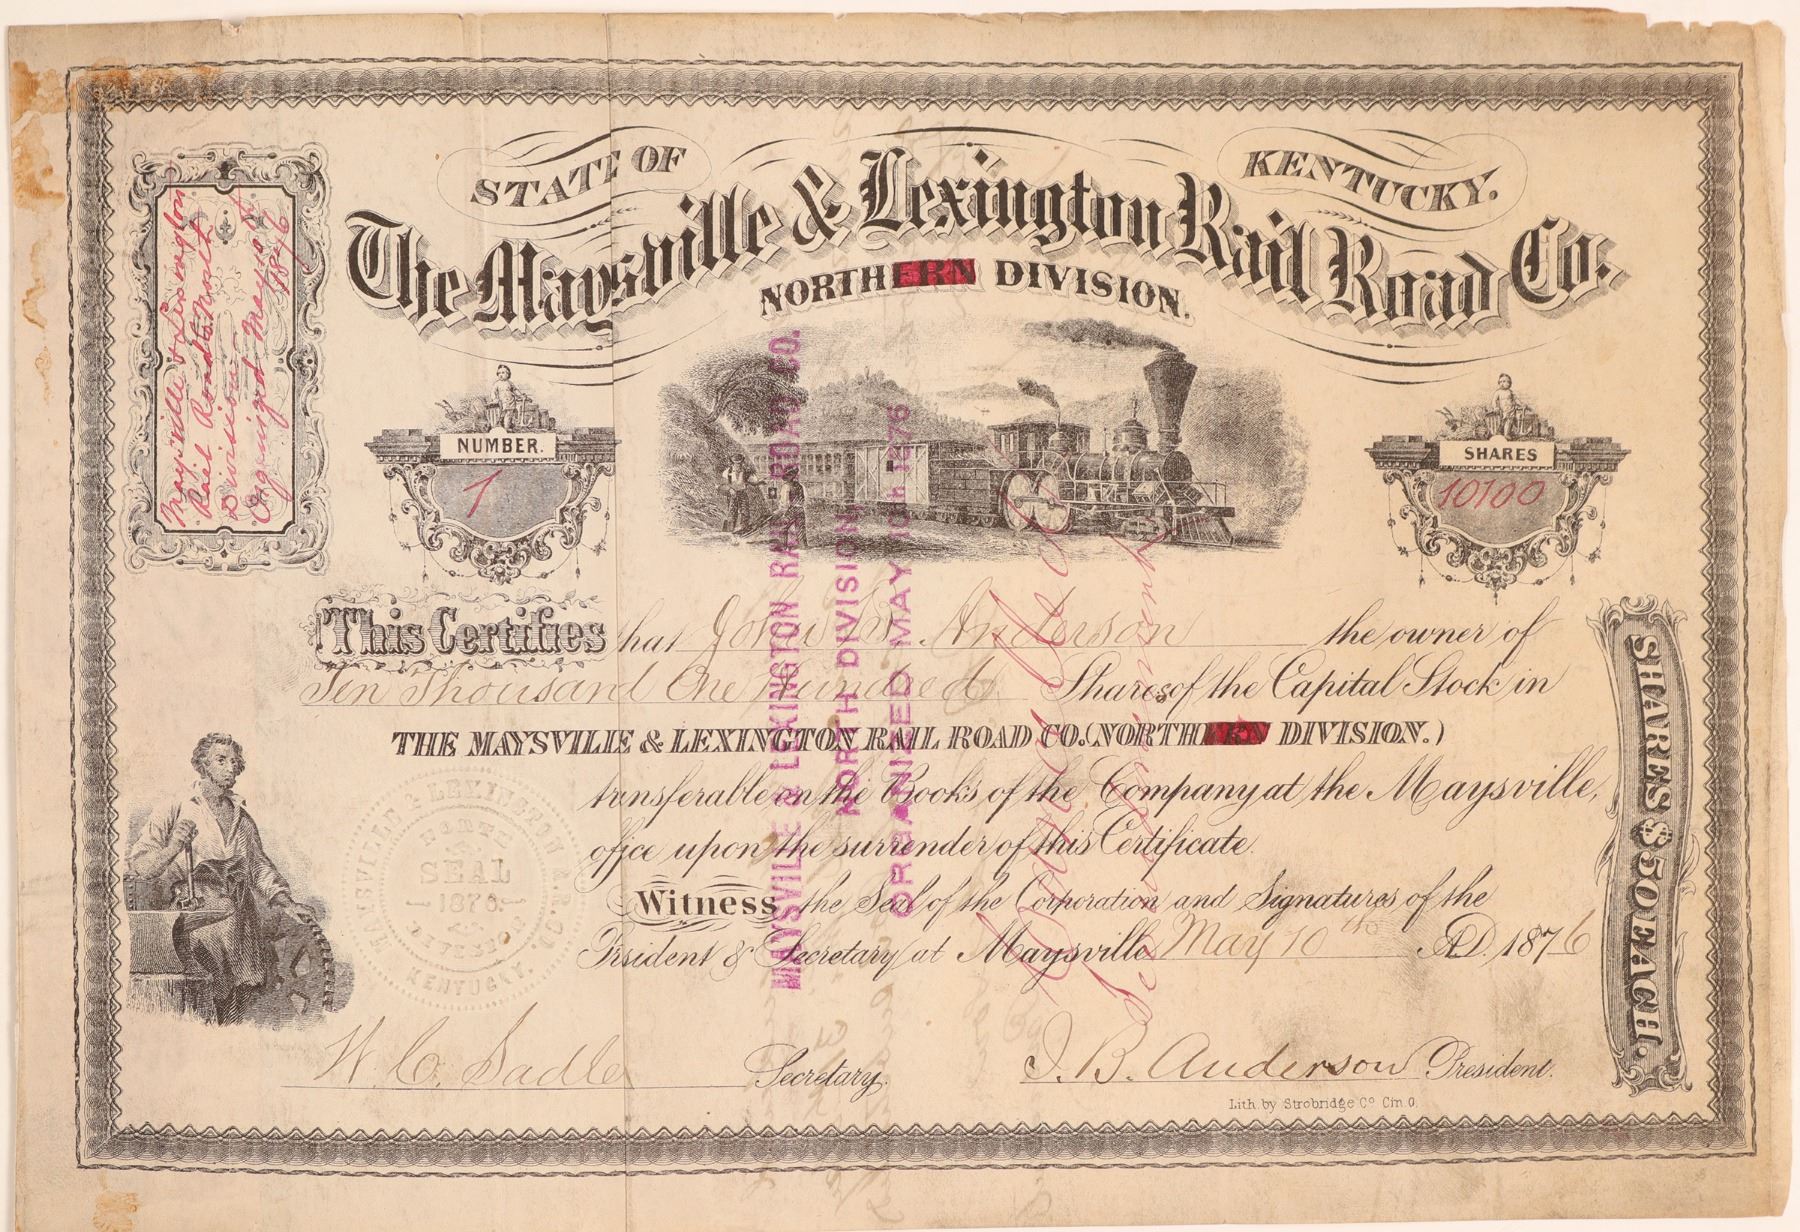 STATE OF KENTUCKY.
The Maysville & Lexington Rail Road Co.
NORTHERN DIVISION.
Maysville & Lexington
Rail Road North
Division
Organized May 10th
1876
NUMBER.
1
SHARES
10100
This Certifies that John B. Anderson the owner of
Ten Thousand One Hundred Shares of the Capital Stock in
THE MAYSVILLE & LEXINGTON RAIL ROAD CO. (NORTHERN DIVISION.)
transferable on the Books of the Company at the Maysville,
office upon the surrender of this Certificate.
Witness the Seal of the Corporation and Signatures of the
President & Secretary at Maysville May 10th A.D. 1876
W. C. Sadler Secretary.
J. B. Anderson President.
Lith. by Strobridge Co Cin. O.
SHARES $50 EACH.
MAYSVILLE & LEXINGTON RAIL ROAD CO.
NORTH DIVISION
ORGANIZED MAY 10th 1876
MAYSVILLE & LEXINGTON R.R. CO.
NORTH
SEAL
1876
KENTUCKY.